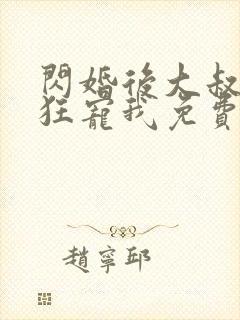 閃婚後大叔
狂寵我免費
趙寧邱